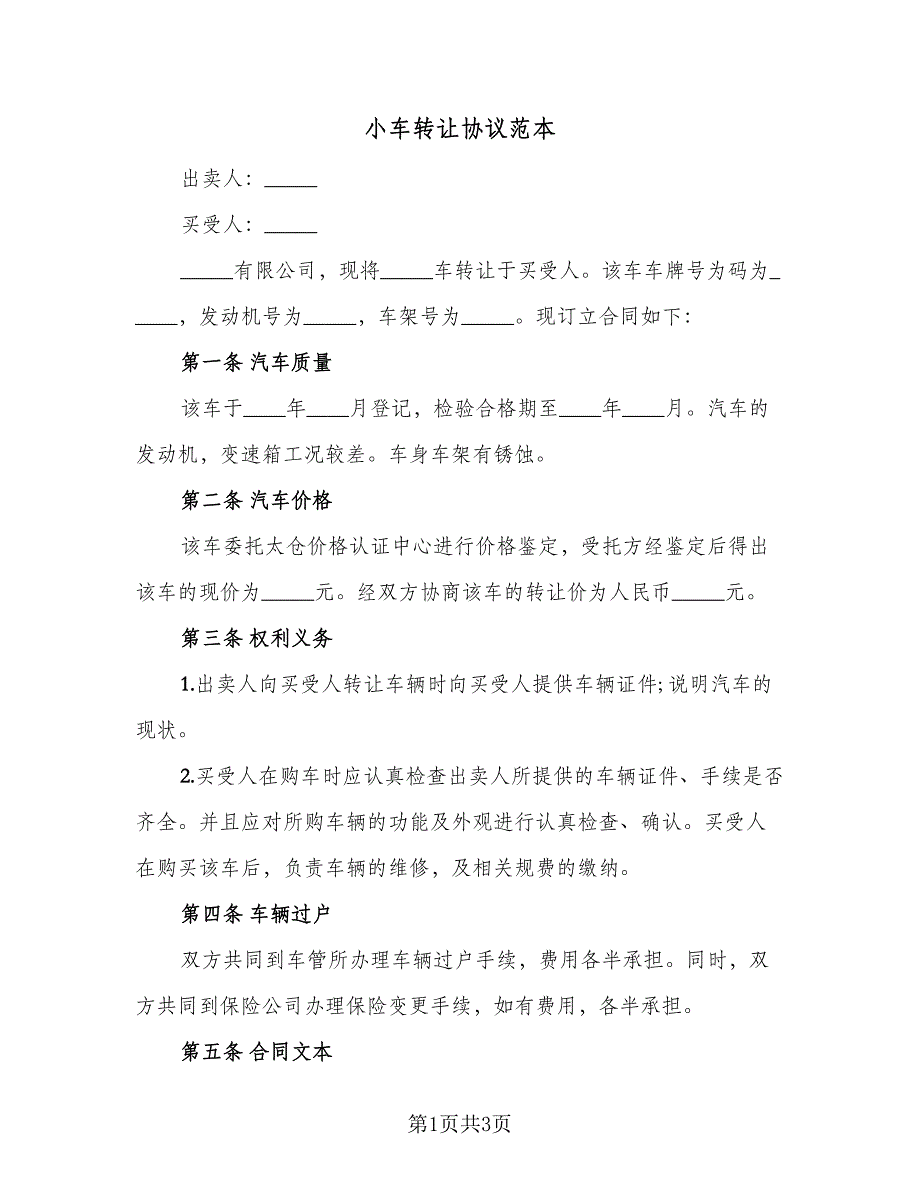 小车转让协议范本
出卖人：_____
买受人：_____
_____有限公司，现将_____车转让于买受人。该车车牌号为码为_
____，发动机号为_____，车架号为_____。现订立合同如下：
第一条 汽车质量
该车于____年____月登记，检验合格期至____年____月。汽车的
发动机，变速箱工况较差。车身车架有锈蚀。
第二条 汽车价格
该车委托太仓价格认证中心进行价格鉴定，受托方经鉴定后得出
该车的现价为_____元。经双方协商该车的转让价为人民币_____元。
第三条 权利义务
1.出卖人向买受人转让车辆时向买受人提供车辆证件;说明汽车的
现状。
2.买受人在购车时应认真检查出卖人所提供的车辆证件、手续是否
齐全。并且应对所购车辆的功能及外观进行认真检查、确认。买受人
在购买该车后，负责车辆的维修，及相关规费的缴纳。
第四条 车辆过户
双方共同到车管所办理车辆过户手续，费用各半承担。同时，双
方共同到保险公司办理保险变更手续，如有费用，各半承担。
第五条 合同文本
第1页共3页